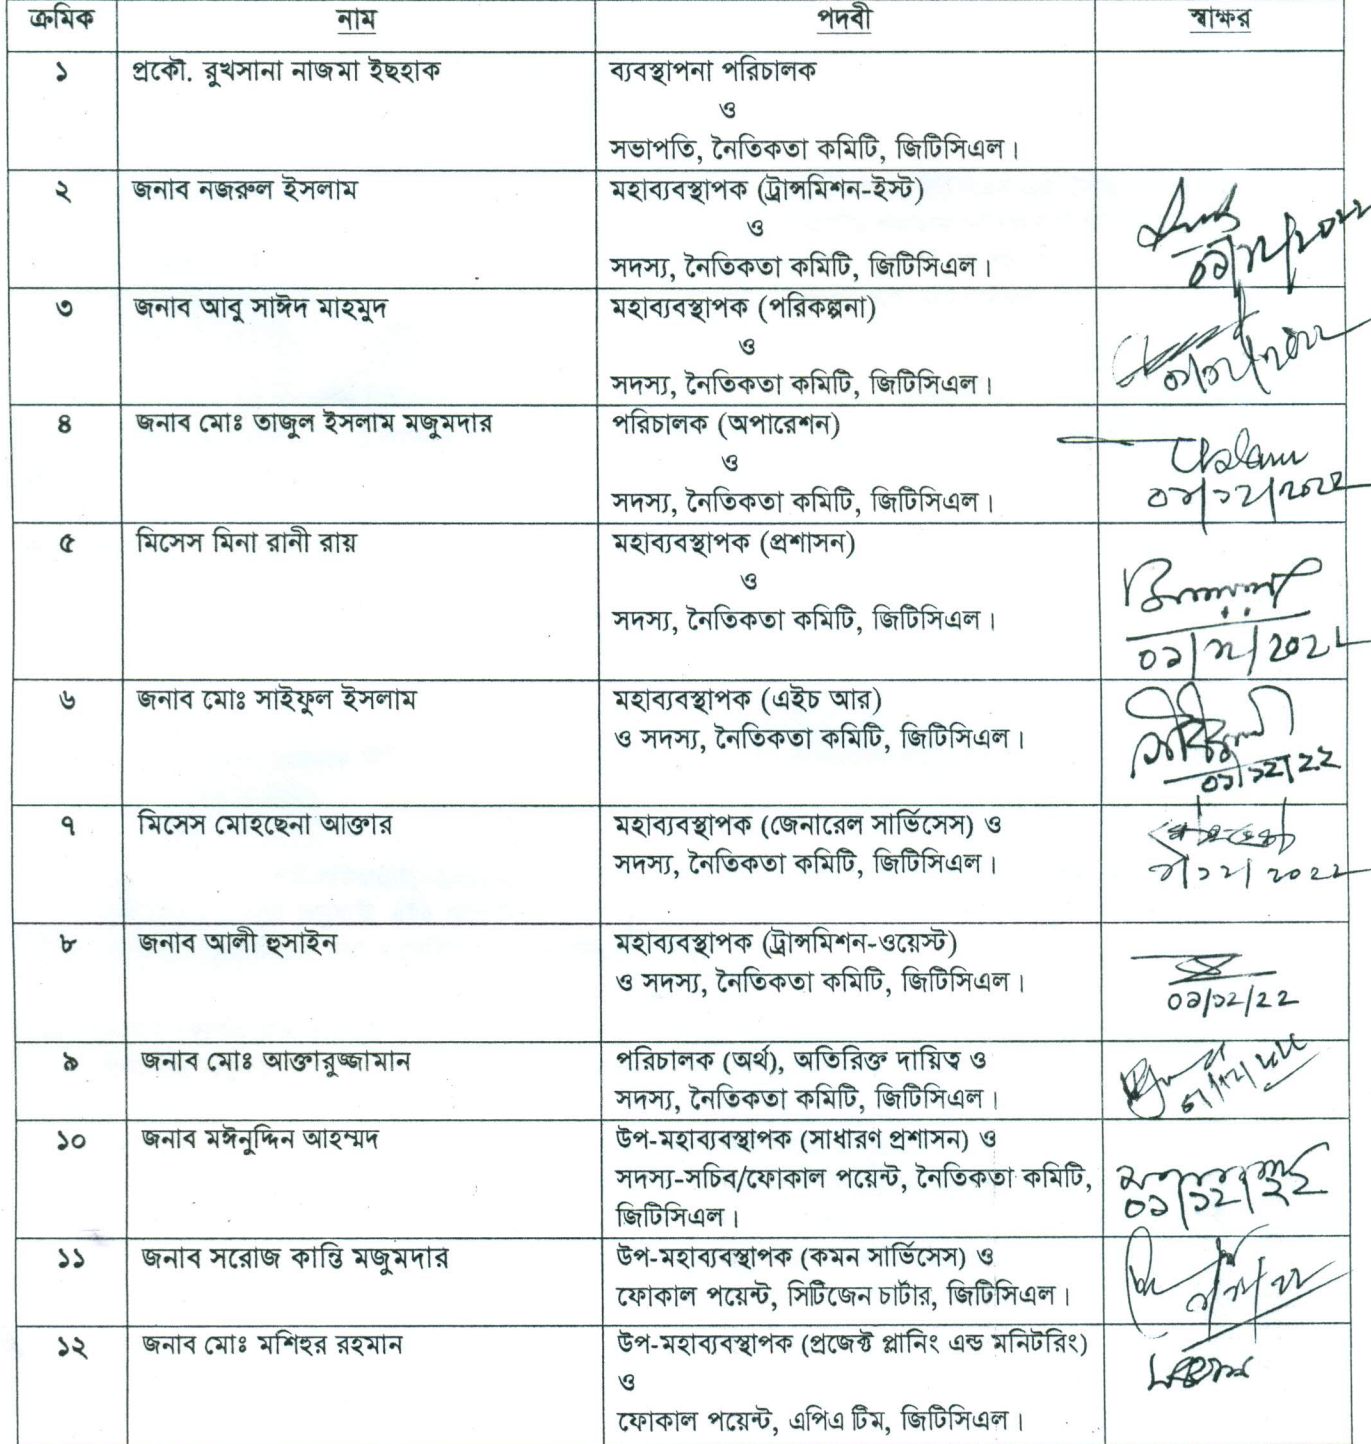 ক্রমিক নাম পদবী স্বাক্ষর
১ প্রকৌ. রুখসানা নাজমা ইছহাক ব্যবস্থাপনা পরিচালক
ও
সভাপতি, নৈতিকতা কমিটি, জিটিসিএল।
২ জনাব নজরুল ইসলাম মহাব্যবস্থাপক (ট্রান্সমিশন-ইস্ট)
ও
সদস্য, নৈতিকতা কমিটি, জিটিসিএল।
০১/১২/২০২২
৩ জনাব আবু সাঈদ মাহমুদ মহাব্যবস্থাপক (পরিকল্পনা)
ও
সদস্য, নৈতিকতা কমিটি, জিটিসিএল।
০১/১২/২০২২
৪ জনাব মোঃ তাজুল ইসলাম মজুমদার পরিচালক (অপারেশন)
ও
সদস্য, নৈতিকতা কমিটি, জিটিসিএল।
০১/১২/২০২২
৫ মিসেস মিনা রানী রায় মহাব্যবস্থাপক (প্রশাসন)
ও
সদস্য, নৈতিকতা কমিটি, জিটিসিএল।
০১/১২/২০২২
৬ জনাব মোঃ সাইফুল ইসলাম মহাব্যবস্থাপক (এইচ আর)
ও সদস্য, নৈতিকতা কমিটি, জিটিসিএল।
০১/১২/২২
৭ মিসেস মোহছেনা আক্তার মহাব্যবস্থাপক (জেনারেল সার্ভিসেস) ও
সদস্য, নৈতিকতা কমিটি, জিটিসিএল।
১/১২/২০২২
৮ জনাব আলী হুসাইন মহাব্যবস্থাপক (ট্রান্সমিশন-ওয়েস্ট)
ও সদস্য, নৈতিকতা কমিটি, জিটিসিএল।
০১/১২/২২
৯ জনাব মোঃ আক্তারুজ্জামান পরিচালক (অর্থ), অতিরিক্ত দায়িত্ব ও
সদস্য, নৈতিকতা কমিটি, জিটিসিএল।
১০ জনাব মঈনুদ্দিন আহম্মদ উপ-মহাব্যবস্থাপক (সাধারণ প্রশাসন) ও
সদস্য-সচিব/ফোকাল পয়েন্ট, নৈতিকতা কমিটি,
জিটিসিএল।
০১/১২/২২
১১ জনাব সরোজ কান্তি মজুমদার উপ-মহাব্যবস্থাপক (কমন সার্ভিসেস) ও
ফোকাল পয়েন্ট, সিটিজেন চার্টার, জিটিসিএল।
১২ জনাব মোঃ মশিহুর রহমান উপ-মহাব্যবস্থাপক (প্রজেক্ট প্লানিং এন্ড মনিটরিং)
ও
ফোকাল পয়েন্ট, এপিএ টিম, জিটিসিএল।